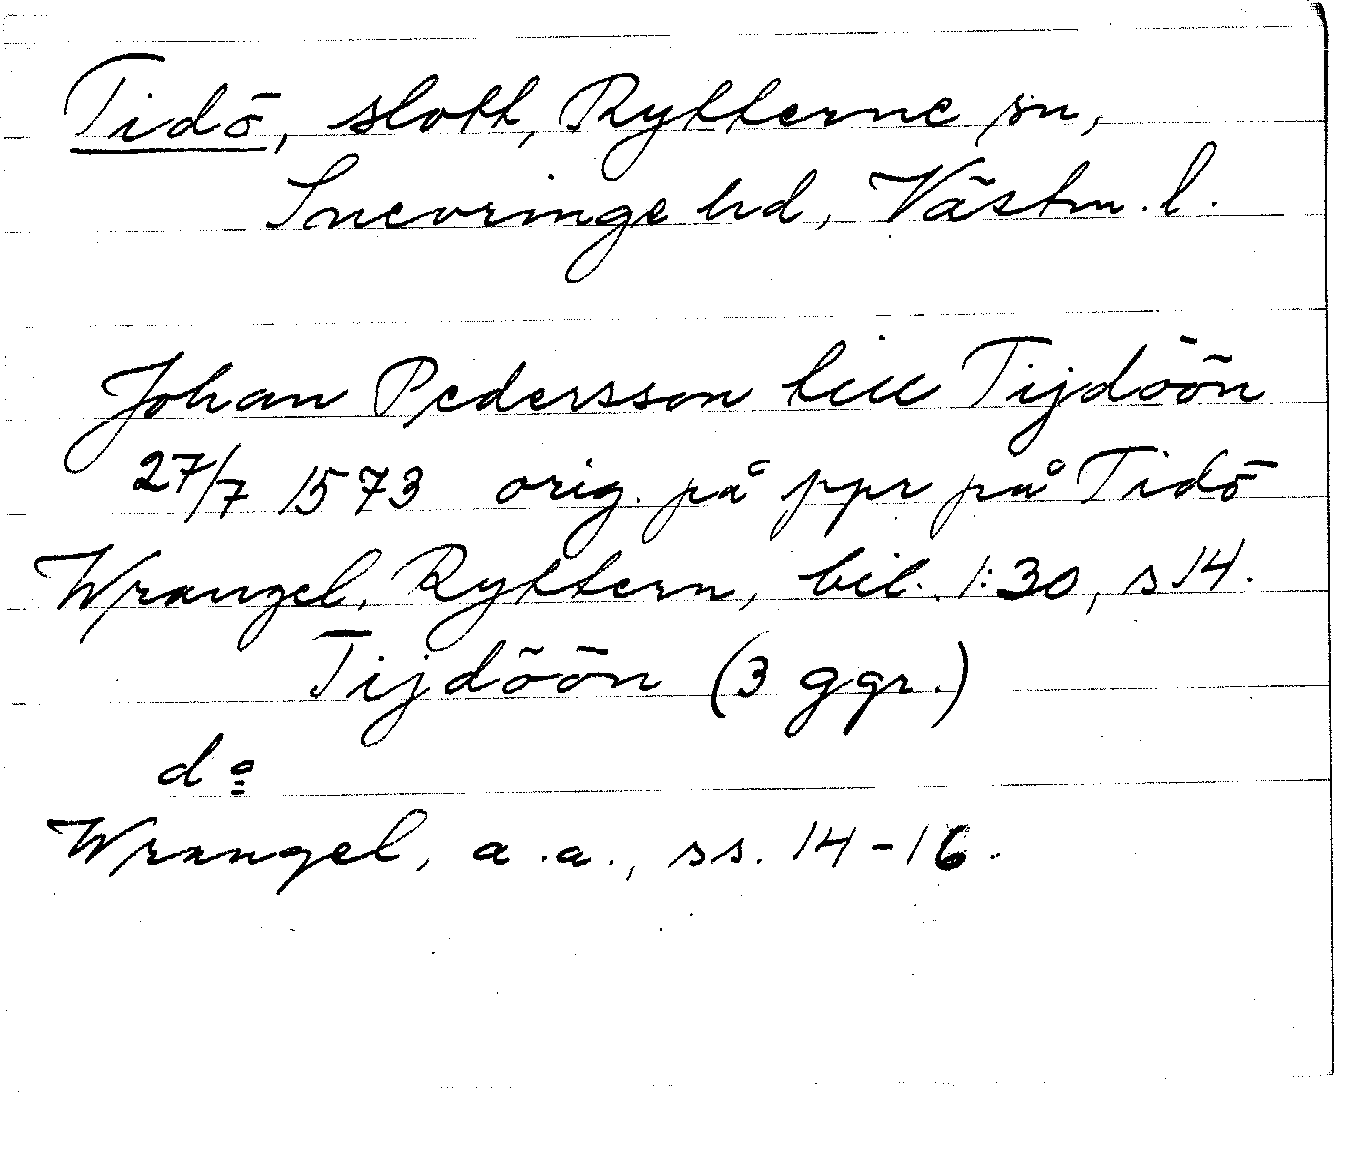 Tidö, slott, Rytterne sn,
Snevringe hd, Västm. l.
Johan Pedersson till Tijdöön
27/7 1573 orig. på ppr på Tidö
Wrangel, Ryttern, bil. 1:30, s 14.
Tijdöön (3 ggr.)
do
Wrangel, a.a., ss. 14-16.